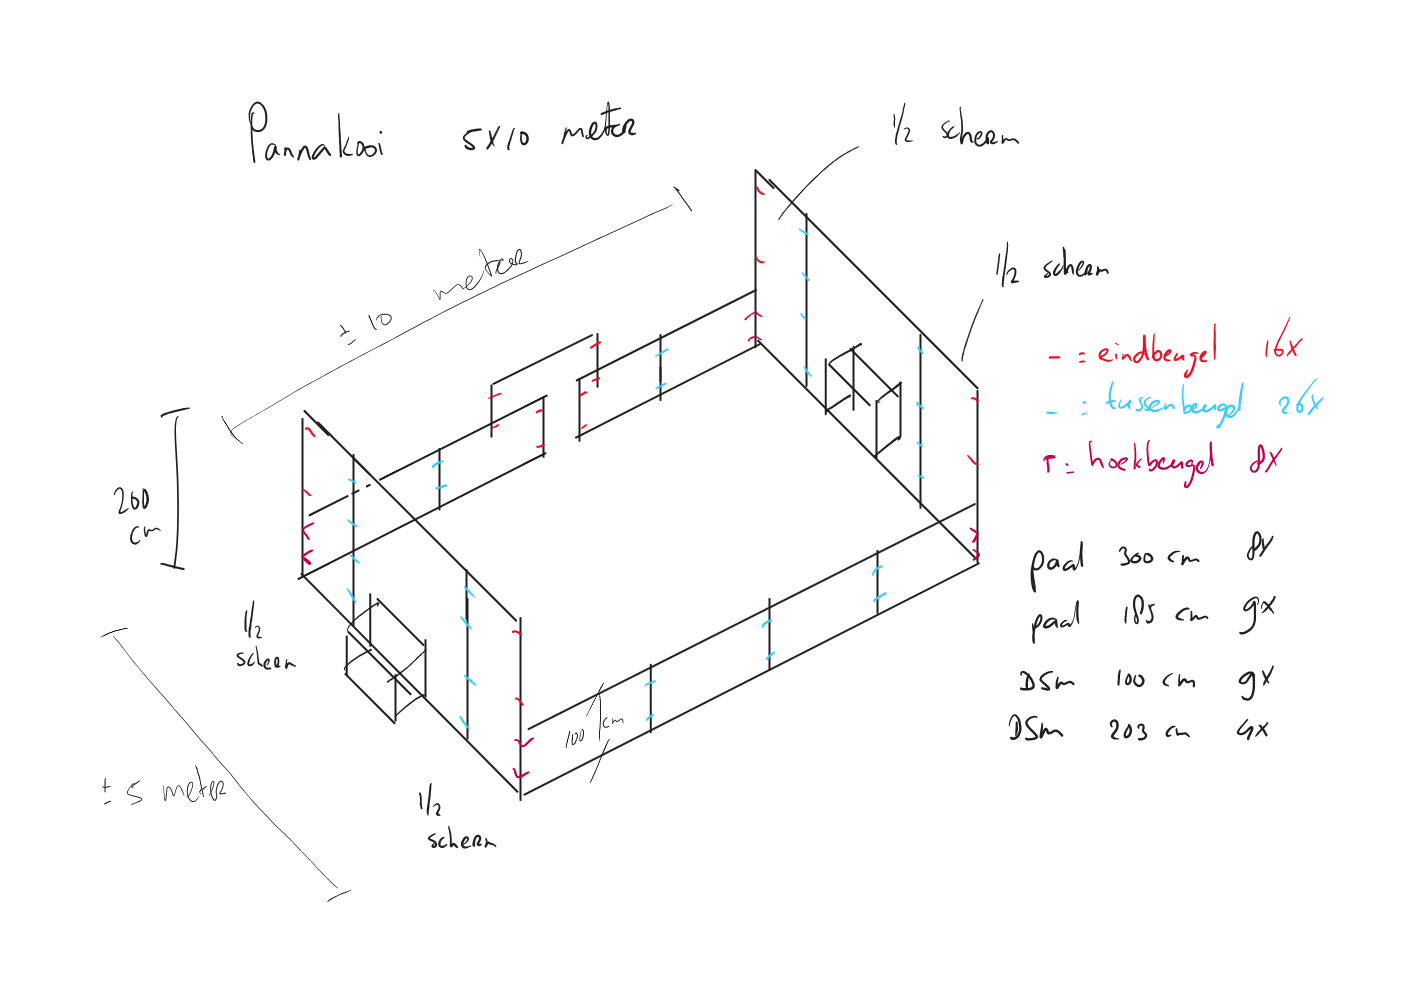 Pannakooi 5x10 meter
1/2 scherm
± 10 meter
1/2 scherm
- = eindbeugel 16x
- = tussenbeugel 26x
r = hoekbeugel 8x
200
cm
paal 300 cm 8x
paal 185 cm 9x
DSM 100 cm 9x
DSM 203 cm 4x
1/2
scherm
100 cm
± 5 meter
1/2
scherm